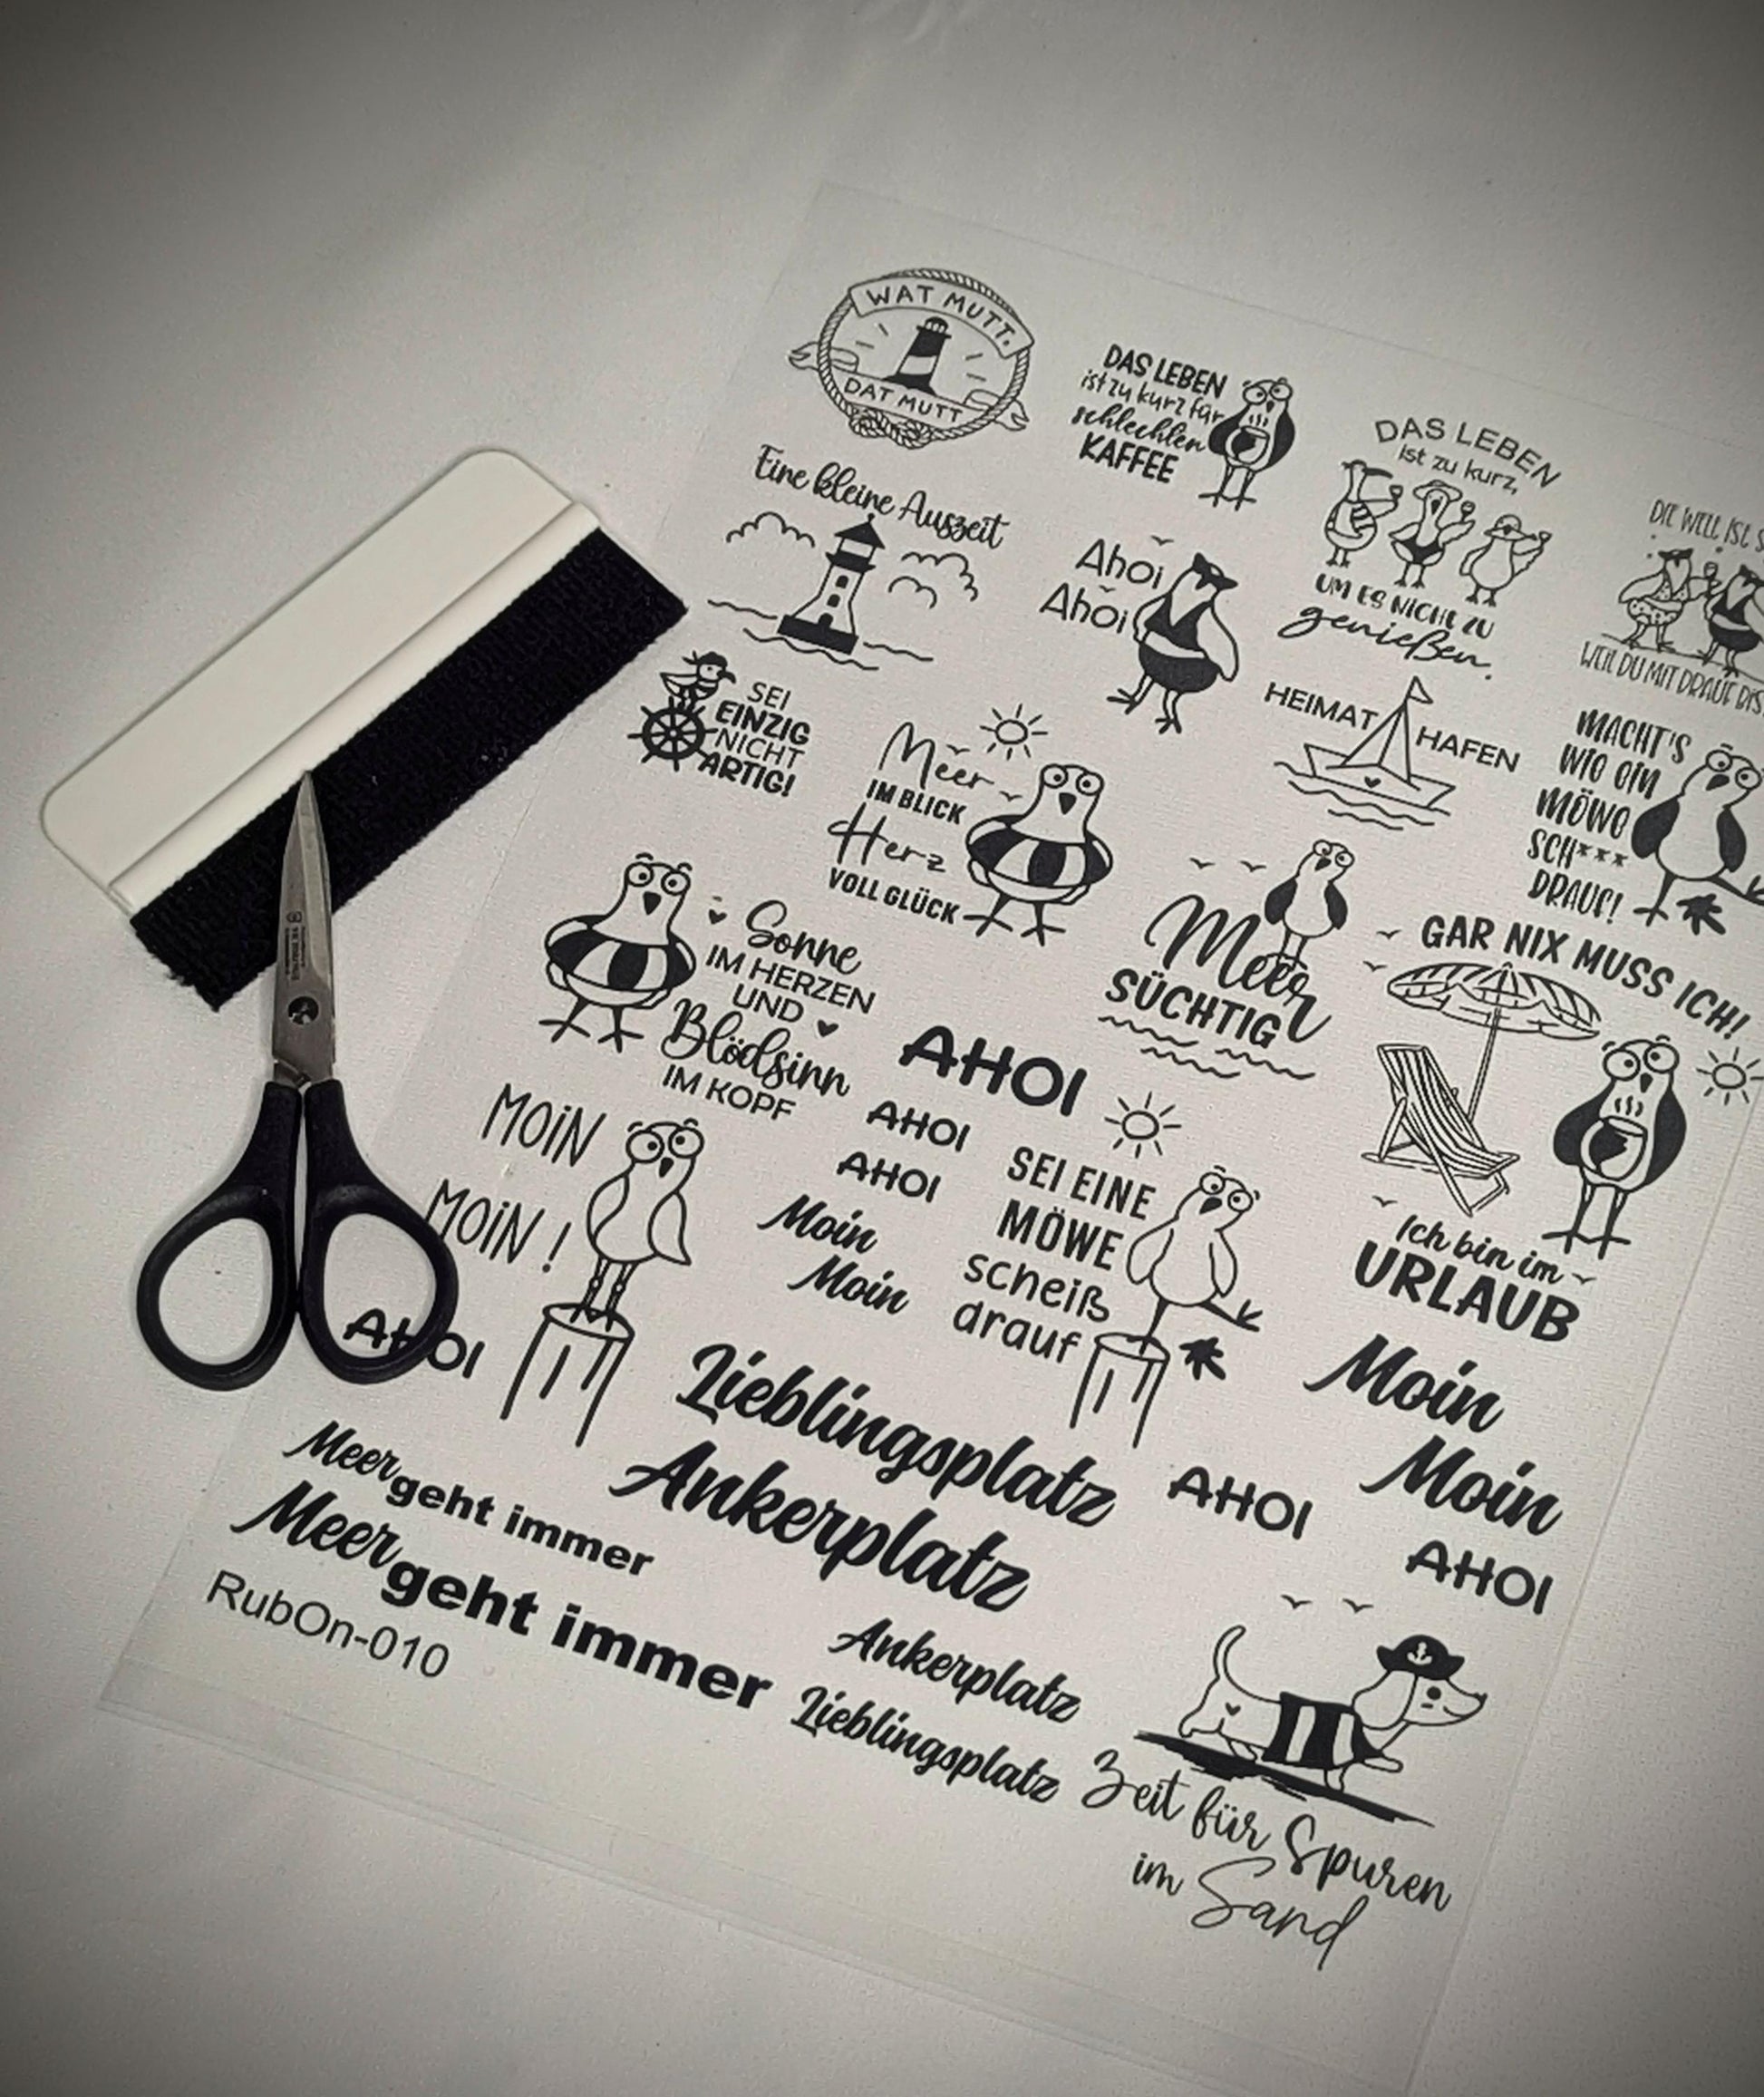 WAT MUTT.
DAT MUTT
DAS LEBEN
ist zu kurz für
schlechten
KAFFEE
DAS LEBEN
ist zu kurz,
UM ES NICHT ZU
genießen.
DIE WELT IST
WEIL DU MIT DRAUF
Eine kleine Auszeit
Ahoi
Ahoi
SEI
EINZIG
NICHT
ARTIG!
Meer
IM BLICK
Herz
VOLL GLÜCK
HEIMAT HAFEN
MACHT'S
WIE EIN
MÖWE
SCH***
DRAUF!
Sonne
IM HERZEN
UND
Blödsinn
IM KOPF
Meer
SÜCHTIG
GAR NIX MUSS ICH!
Ich bin im
URLAUB
AHOI
AHOI
AHOI
MOIN
MOIN!
Moin
Moin
SEI EINE
MÖWE
scheiß
drauf
AHOI
Lieblingsplatz
Ankerplatz
Moin
Moin
AHOI
AHOI
Meer geht immer
Meer geht immer
RubOn-010
Ankerplatz
Lieblingsplatz
Zeit für Spuren
im Sand